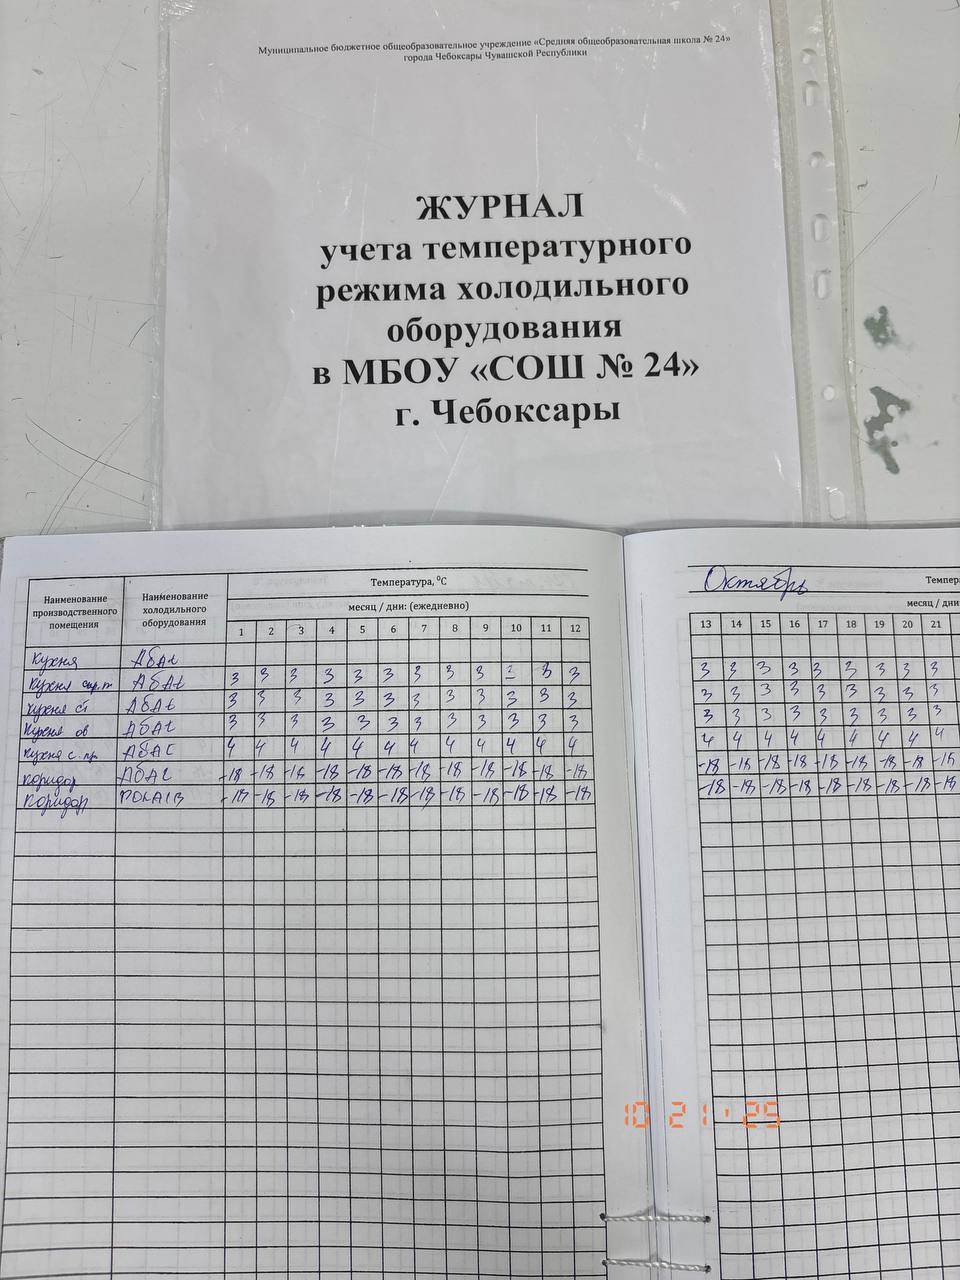 Муниципальное бюджетное общеобразовательное учреждение «Средняя общеобразовательная школа № 24»
города Чебоксары Чувашской Республики
ЖУРНАЛ
учета температурного
режима холодильного
оборудования
в МБОУ «СОШ № 24»
г. Чебоксары
Наименование производственного помещения
Наименование холодильного оборудования
Температура, ⁰С
месяц / дни: (ежедневно)
1 2 3 4 5 6 7 8 9 10 11 12
Октябрь
месяц / дни
13 14 15 16 17 18 19 20 21
Кухня Абат
Кухня АБАТ 3 3 3 3 3 3 3 3 3 3 3 3 3 3 3 3 3 3 3 3
Кухня ст АБАТ 3 3 3 3 3 3 3 3 3 3 3 3 3 3 3 3 3 3 3 3 3
Кухня ов АБАТ 3 3 3 3 3 3 3 3 3 3 3 3 3 3 3 3 3 3 3 3 3
Кухня с. пр. АБАТ 4 4 4 4 4 4 4 4 4 4 4 4 4 4 4 4 4 4 4 4 4
Коридор АБАТ -18 -18 -18 -18 -18 -18 -18 -18 -18 -18 -18 -18 -18 -18 -18 -18 -18 -18 -18 -18 -18
Коридор POLAIR -18 -18 -18 -18 -18 -18 -18 -18 -18 -18 -18 -18 -18 -18 -18 -18 -18 -18 -18 -18 -18
10 21 ' 25